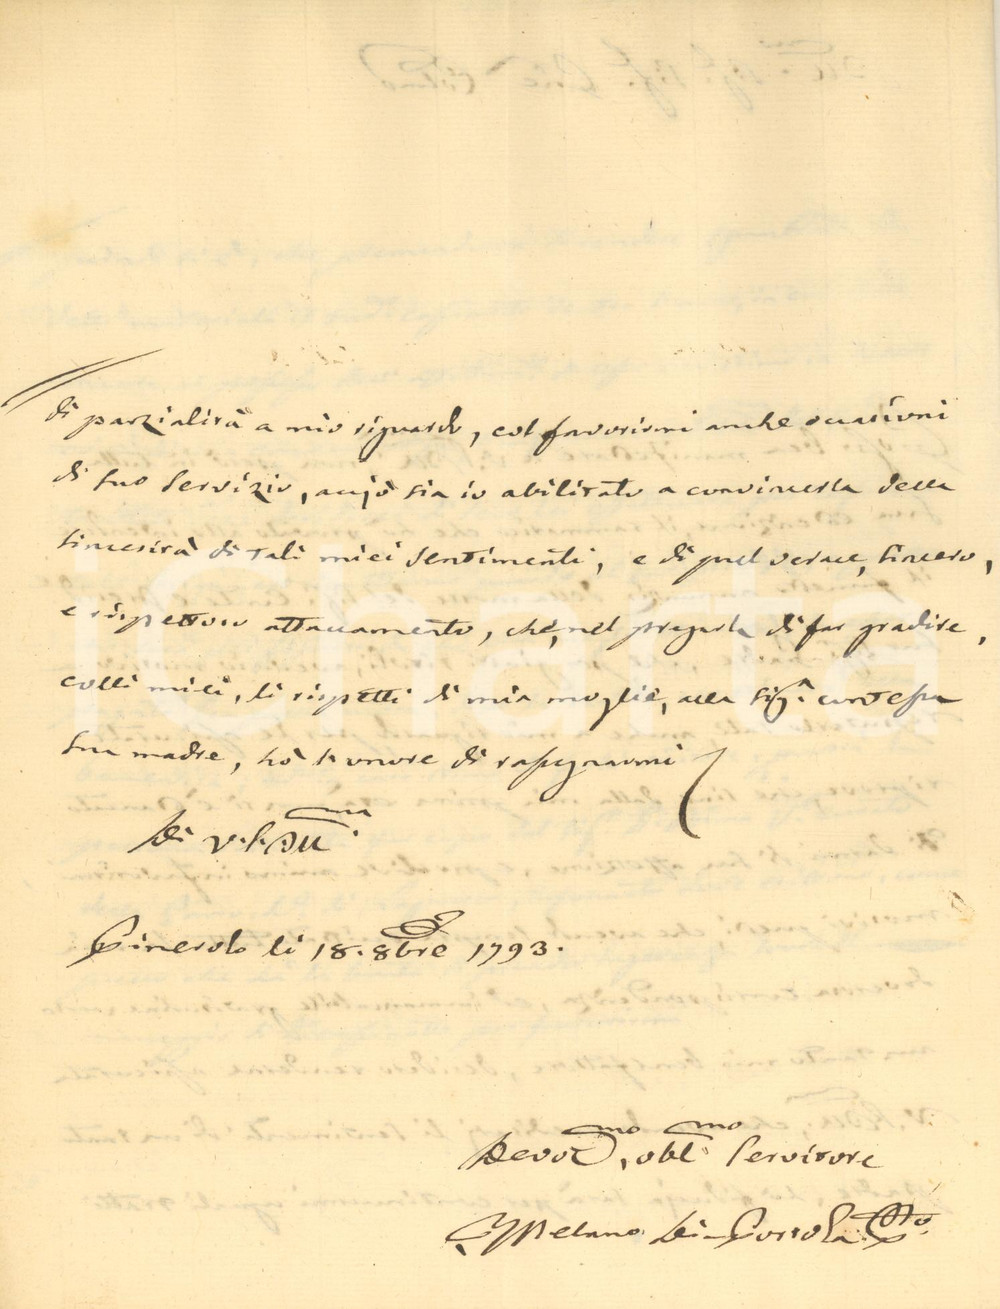 di parzialità a mio riguardo, col favorirmi anche occasioni
di suo servizio, acciò sia io abilitato a convincerla della
sincerità di tali miei sentimenti, e di quel verace, sincero,
e rispettoso attaccamento, che, nel pregarla di far gradire,
colli miei, li rispetti di mia moglie, alla Sig.ª contessa
sua madre, hò l'onore di rassegnarmi
Di V. S. Ill.ma
Pinerolo li 18. 8bre 1793.
Devot.mo, obbl.mo Servitore
Melano Di
iCharta